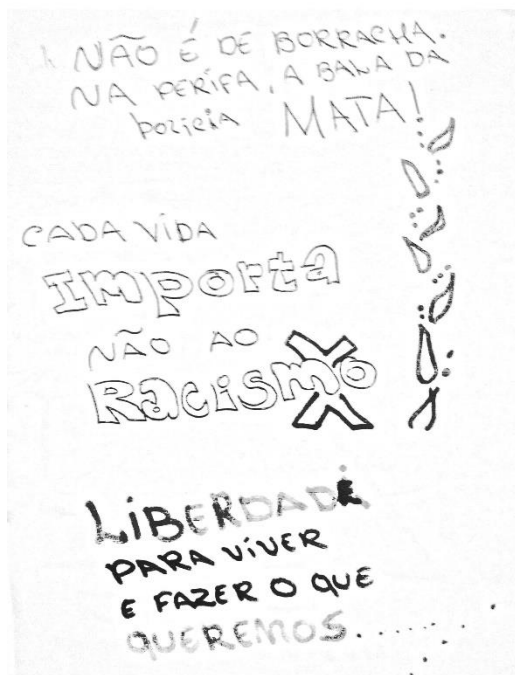 NÃO É DE BORRACHA.
NA PERIFA, A BALA DA
POLICIA MATA!
CADA VIDA
IMPORTA
NÃO AO
RACISMO
LIBERDADE
PARA VIVER
E FAZER O QUE
QUEREMOS......